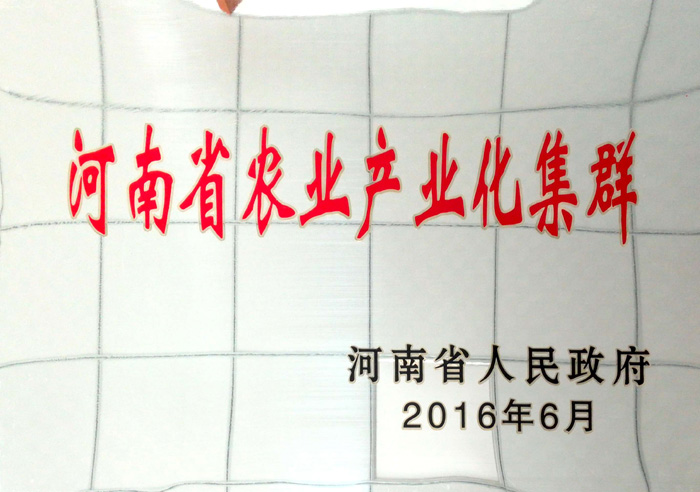 河南省农业产业化集群
河南省人民政府
2016年6月